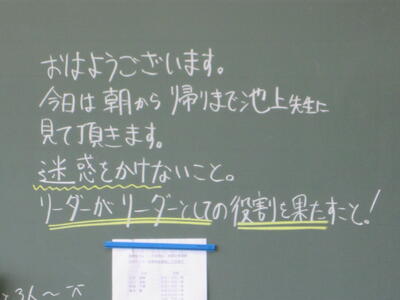 おはようございます。
今日は朝から帰りまで池上先生に
見て頂きます。
迷惑をかけないこと。
リーダーがリーダーとしての役割を果たすこと!